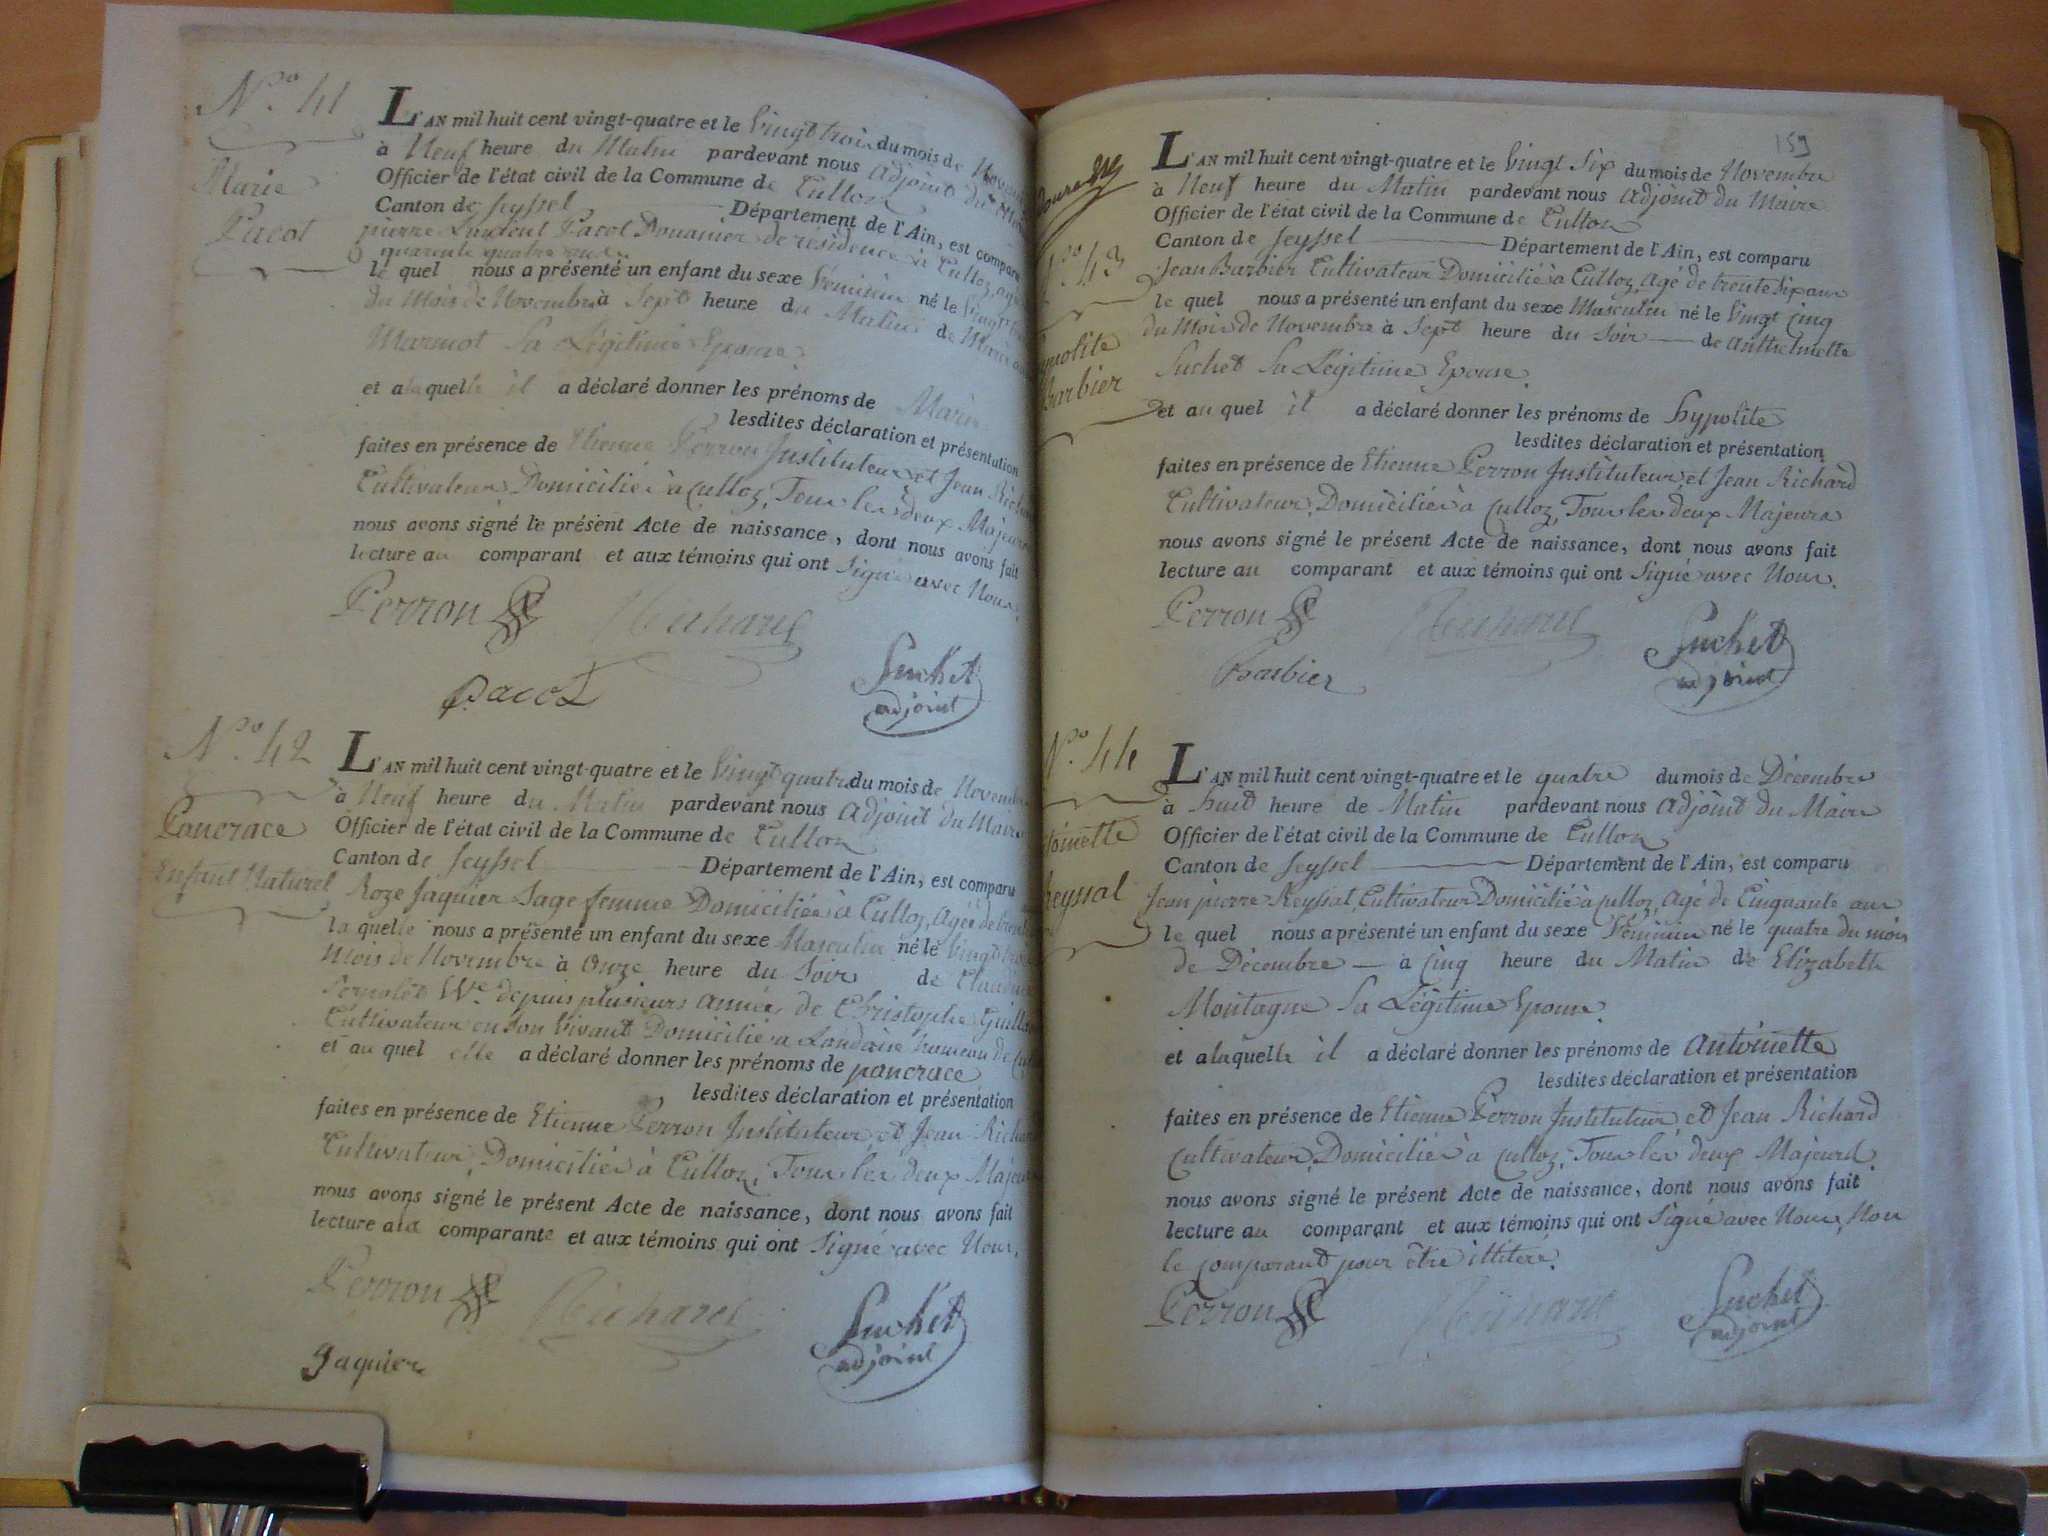 N.o 41
Marie
Pacot
L'AN mil huit cent vingt-quatre et le vingt trois du mois de
à Neuf heure du Matin pardevant nous adjoint du
Officier de l'état civil de la Commune de Culloz
Canton de Seyssel Département de l'Ain, est comparu
pierre Laurent Pacot Douanier de résidence à Culloz, agé
quarente quatre ans
le quel nous a présenté un enfant du sexe féminin né le vingt
du Mois de Novembre à Sept heure du Matin de Marie
Marmot Sa Légitime Epouse
et a laquelle il a déclaré donner les prénoms de Marie
lesdites déclaration et présentation
faites en présence de Etienne Perron Instituteur et Jean Richard
Cultivateur Domiciliés à Culloz, Tous les deux Majeurs
nous avons signé le présent Acte de naissance, dont nous avons fait
lecture au comparant et aux témoins qui ont Signé avec Nous.
Perron Richard
Pacot Suchet
adjoint
N.o 42
Pancrace
Enfant Naturel
L'AN mil huit cent vingt-quatre et le vingt quatre du mois de Novembre
à Neuf heure du Matin pardevant nous adjoint du Maire
Officier de l'état civil de la Commune de Culloz
Canton de Seyssel Département de l'Ain, est comparu
Roze Jaquier Sage femme Domiciliée à Culloz, Agée de
la quelle nous a présenté un enfant du sexe Masculin né le vingt trois
Mois de Novembre à Onze heure du Soir de Claudine
Ve. depuis plusieurs année de Christophe
Cultivateur en Son Vivant Domicilié a Landaise hameau de
et au quel elle a déclaré donner les prénoms de pancrace
lesdites déclaration et présentation
faites en présence de Etienne Perron Instituteur, et Jean Richard
Cultivateur, Domiciliés à Culloz, Tous les deux Majeurs
nous avons signé le présent Acte de naissance, dont nous avons fait
lecture a la comparante et aux témoins qui ont Signé avec Nous.
Perron Richard
Suchet
adjoint
Jaquier
159
43
Barbier
L'AN mil huit cent vingt-quatre et le vingt Six du mois de Novembre
à Neuf heure du Matin pardevant nous adjoint du Maire
Officier de l'état civil de la Commune de Culloz
Canton de Seyssel Département de l'Ain, est comparu
Jean Barbier Cultivateur Domicilié à Culloz, Agé de trente Six ans
le quel nous a présenté un enfant du sexe Masculin né le vingt cinq
du Mois de Novembre à Sept heure du Soir de Anthelmette
Suchet Sa Légitime Epouse.
et au quel il a déclaré donner les prénoms de hypolite
lesdites déclaration et présentation
faites en présence de Etienne Perron Instituteur, et Jean Richard
Cultivateur, Domiciliés à Culloz, Tous les deux Majeurs
nous avons signé le présent Acte de naissance, dont nous avons fait
lecture au comparant et aux témoins qui ont Signé avec Nous.
Perron Richard
Suchet
Barbier adjoint
N.o 44
L'AN mil huit cent vingt-quatre et le quatre du mois de Décembre
à huit heure de Matin pardevant nous adjoint du Maire
Officier de l'état civil de la Commune de Culloz
Canton de Seyssel Département de l'Ain, est comparu
Jean pierre Reyssal, Cultivateur Domicilié à Culloz, Agé de Cinquante ans
le quel nous a présenté un enfant du sexe féminin né le quatre du mois
de Décembre à Cinq heure du Matin de Elizabeth
Montagne Sa Légitime Epouse.
et a laquelle il a déclaré donner les prénoms de Antoinette
lesdites déclaration et présentation
faites en présence de Etienne Perron Instituteur, et Jean Richard
Cultivateur, Domiciliés à Culloz, Tous les deux Majeurs
nous avons signé le présent Acte de naissance, dont nous avons fait
lecture au comparant et aux témoins qui ont Signé avec Nous, Non
le comparant pour être illiteré.
Perron Richard Suchet
adjoint